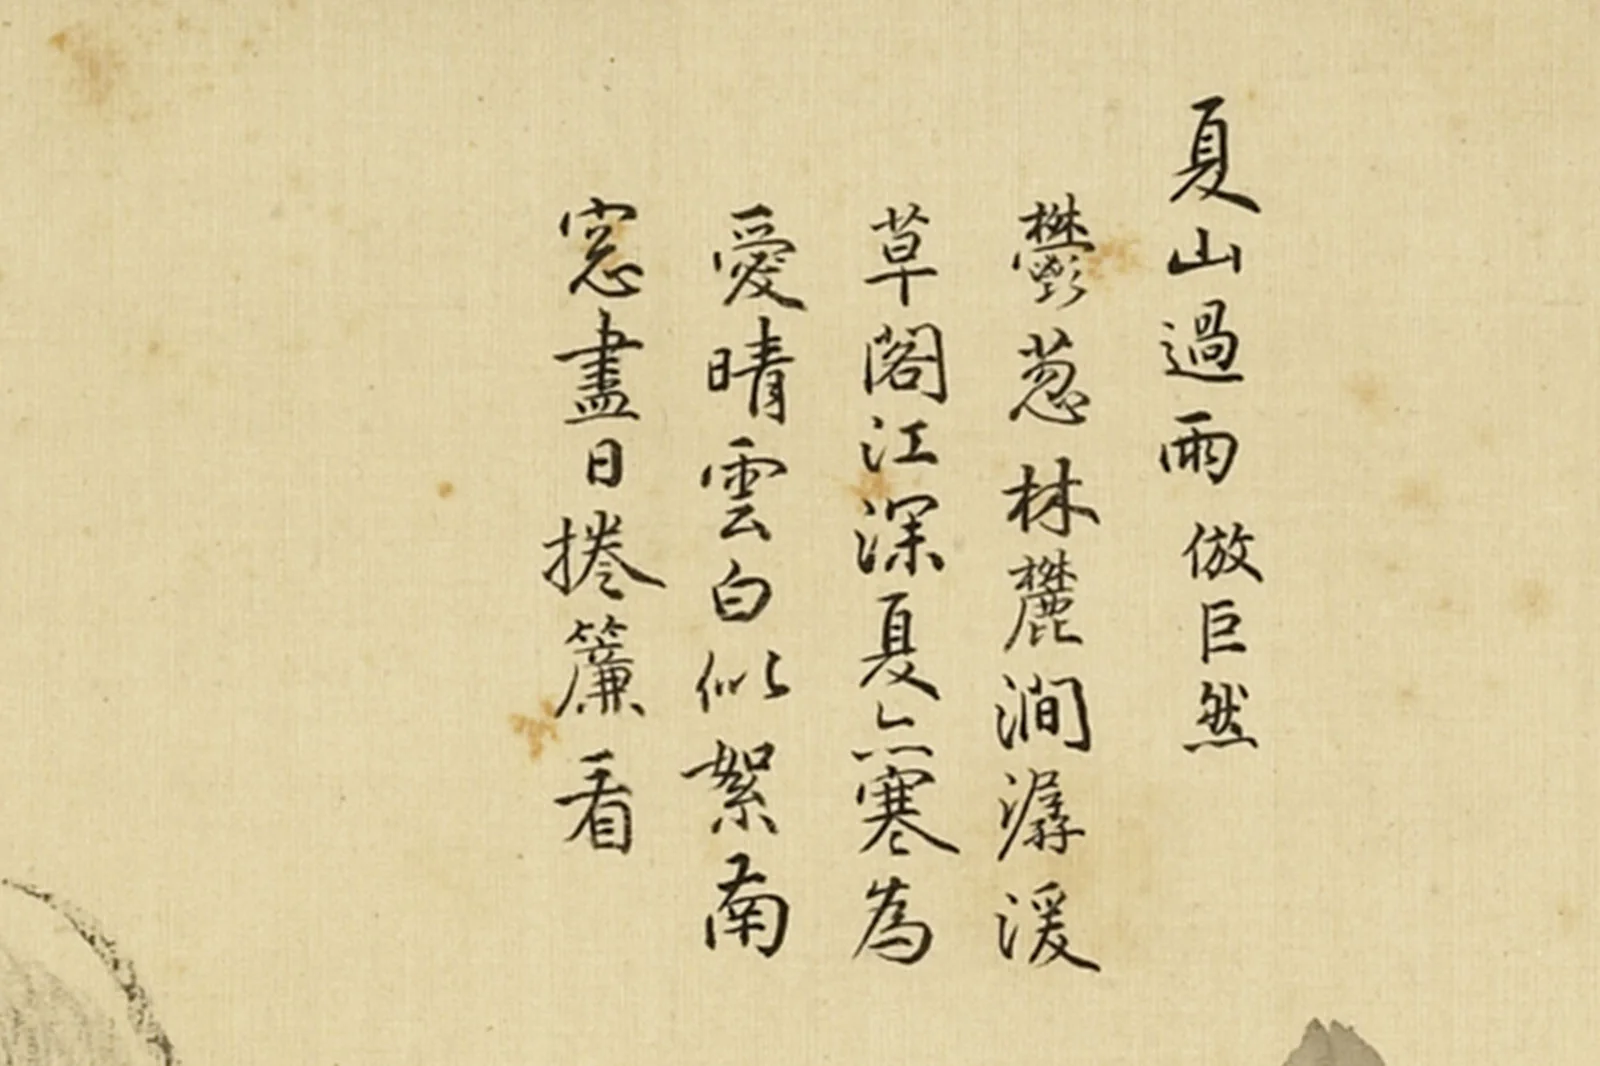 夏山過雨 倣巨然
鬱葱林麓澗潺湲
草閣江深夏亦寒為
愛晴雲白似絮南
窓盡日捲簾看